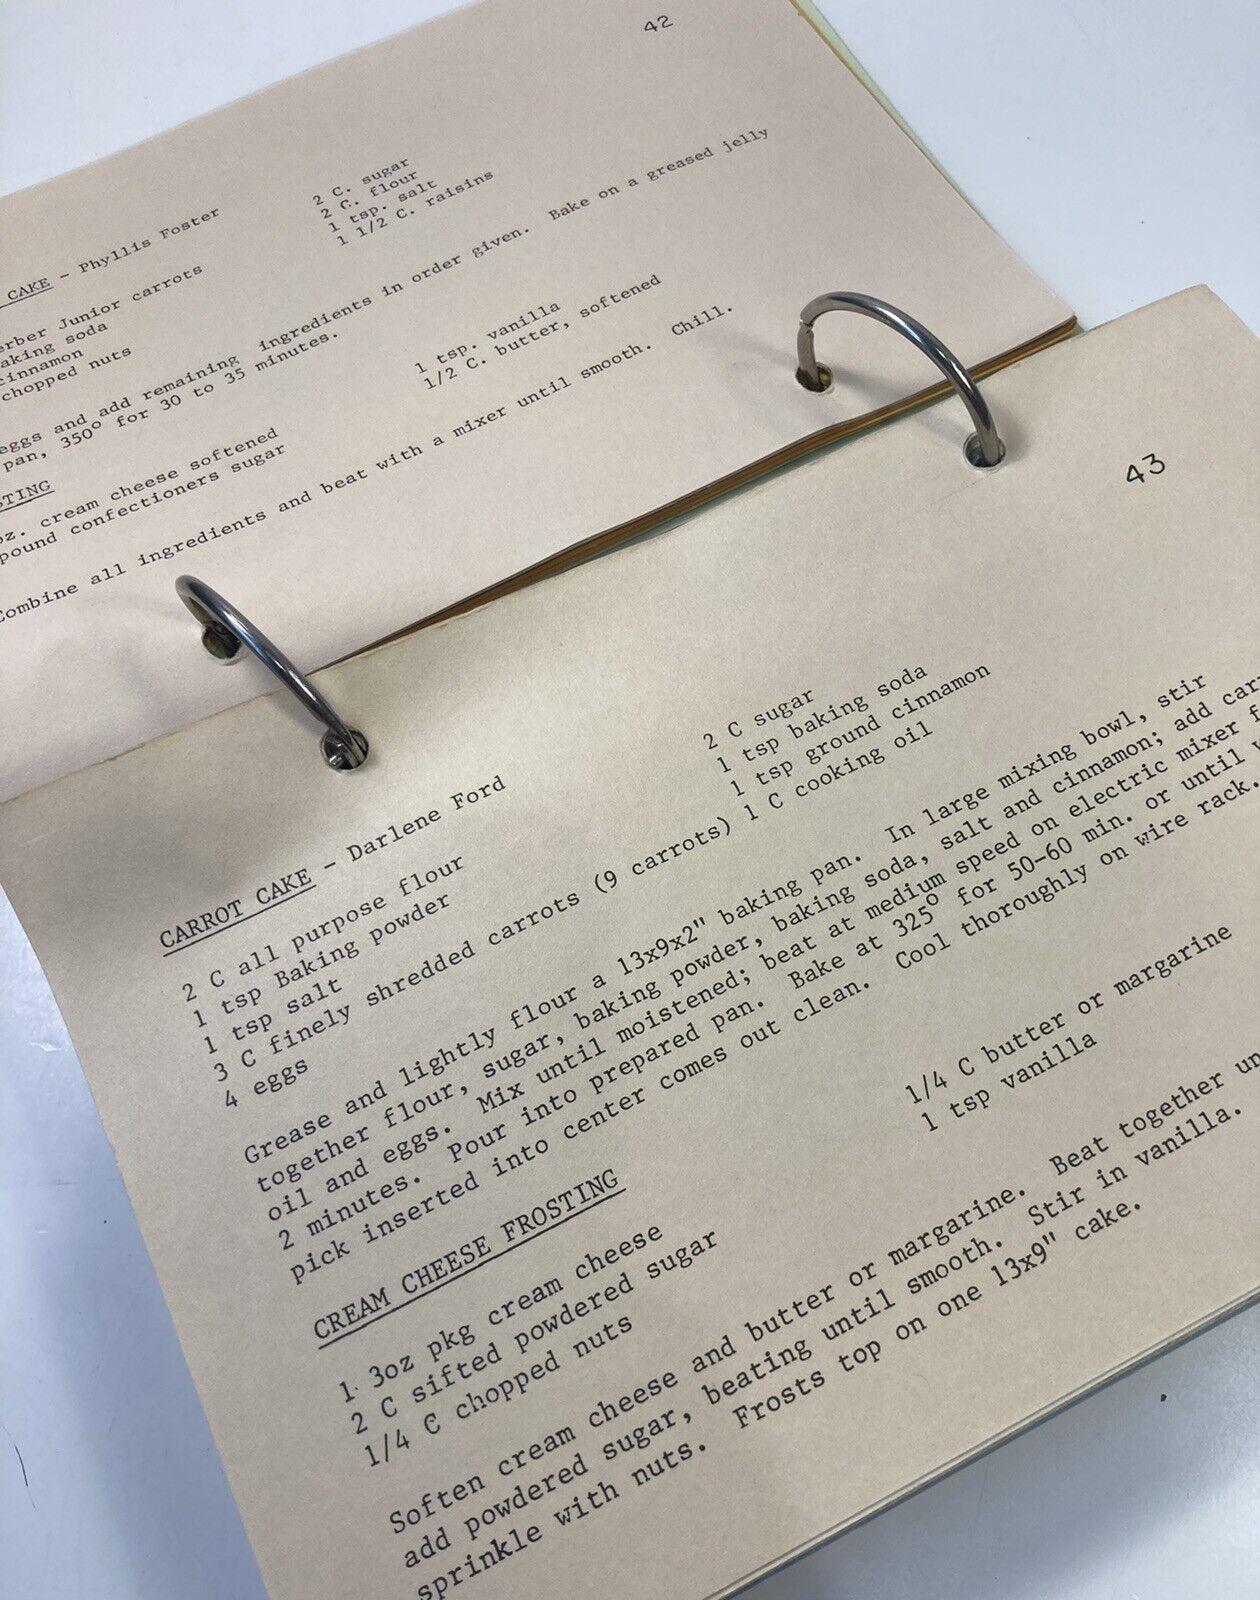 42
CAKE - Phyllis Foster
2 C. sugar
2 C. flour
1 tsp. salt
1 1/2 C. raisins
Junior carrots
soda
cinnamon
chopped nuts
eggs and add remaining ingredients in order given. Bake on a greased jelly
pan, 350° for 30 to 35 minutes.
1 tsp. vanilla
1/2 C. butter, softened
oz. cream cheese softened
pound confectioners sugar
Combine all ingredients and beat with a mixer until smooth. Chill.
43
CARROT CAKE - Darlene Ford
2 C all purpose flour 2 C sugar
1 tsp Baking powder 1 tsp baking soda
1 tsp salt 1 tsp ground cinnamon
3 C finely shredded carrots (9 carrots) 1 C cooking oil
4 eggs
Grease and lightly flour a 13x9x2" baking pan. In large mixing bowl, stir
together flour, sugar, baking powder, baking soda, salt and cinnamon; add
oil and eggs. Mix until moistened; beat at medium speed on electric mixer
2 minutes. Pour into prepared pan. Bake at 325° for 50-60 min. or until
pick inserted into center comes out clean. Cool thoroughly on wire rack.
CREAM CHEESE FROSTING
1 3oz pkg cream cheese 1/4 C butter or margarine
2 C sifted powdered sugar 1 tsp vanilla
1/4 C chopped nuts
Soften cream cheese and butter or margarine. Beat together
add powdered sugar, beating until smooth. Stir in vanilla.
sprinkle with nuts. Frosts top on one 13x9" cake.